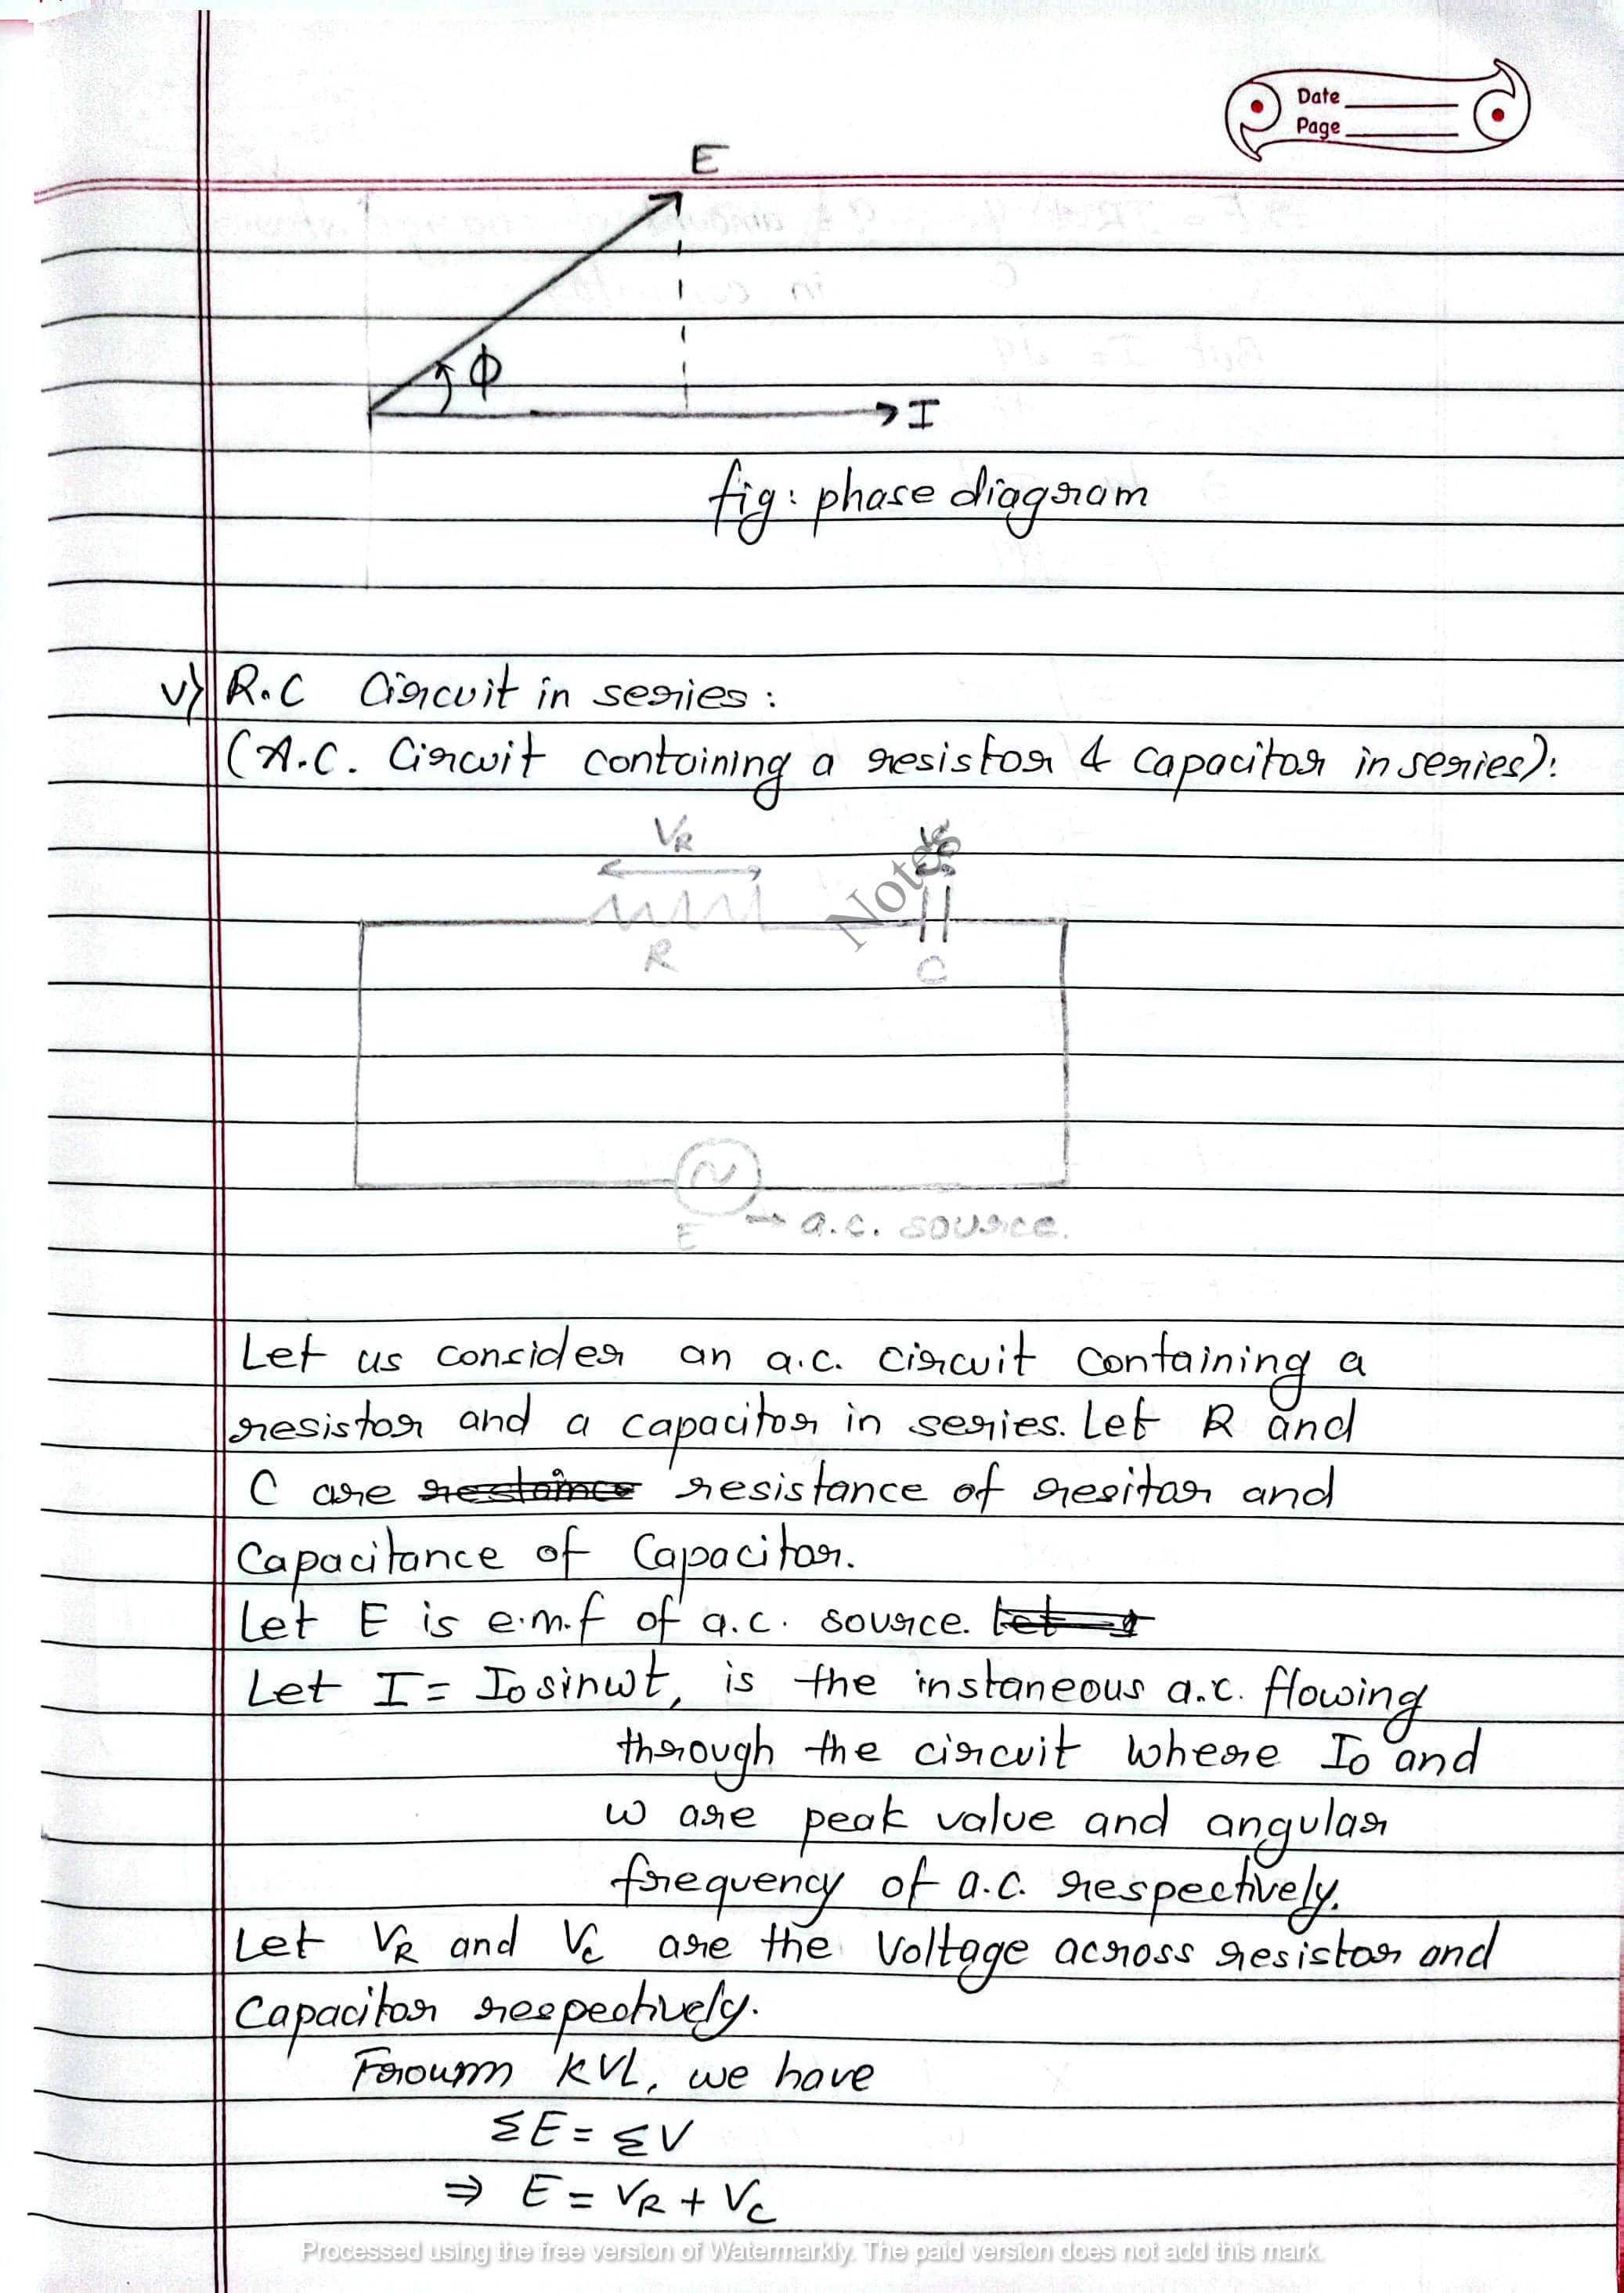 Date
Page
E
Φ
I
fig: phase diagram
v) R.C Circuit in series:
(A.C. Circuit containing a resistor & capacitor in series):
VR
Notes
R
C
E → a.c. source.
Let us consider an a.c. circuit containing a
resistor and a capacitor in series. Let R and
C are resistance of resitor and
Capacitance of Capacitor.
Let E is e.m.f of a.c. source.
Let I = I₀ sinωt, is the instaneous a.c. flowing
through the circuit where I₀ and
ω are peak value and angular
frequency of a.c. respectively.
Let VR and Vc are the Voltage across resistor and
Capacitor respectively.
From KVL, we have
ΣE = ΣV
⇒ E = VR + Vc
Processed using the free version of Watermarkly. The paid version does not add this mark.